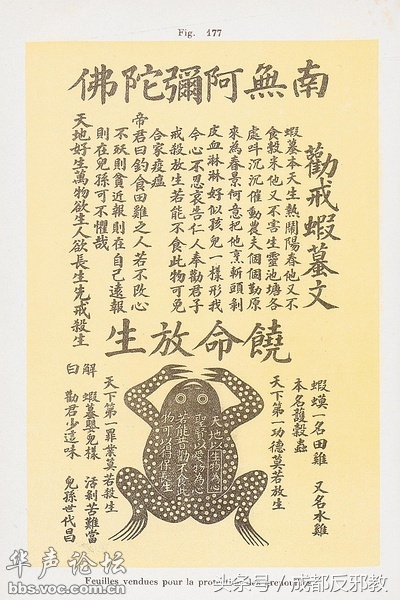 Fig. 177
南無阿彌陀佛
勸戒蝦蟇文
蝦蟇本天生熱鬧陽春他又不
食穀米他又不害生靈池塘各
處斗沉沉催動農夫個個勤原
來為春景何意把他烹斬頭剥
皮血淋淋好似孩兒一樣形我
今心不忍哀告仁人奉勸君子
戒殺放生若能不食此物可免
合家疫瘟
帝君曰釣食田雞之人若不改心
不殀則貧近報則在自己遠報
則在兒孫可不懼哉
天地好生萬物欲生人欲長生先戒殺生
饒命放生
蝦蟆一名田雞 又名水雞
本名護穀蟲
天下第一功德莫若放生
天地以生物為心
聖賢以愛物為心
若能普勸不食此
物可以得住長生
天下第一罪業莫若殺生
解 蝦蟇嬰兒樣 活剥苦難當
曰 勸君少這味 兒孫世代昌
Feuilles vendues pour la protection des grenouilles.
华声论坛
bbs.voc.com.cn
头条号/成都反邪教